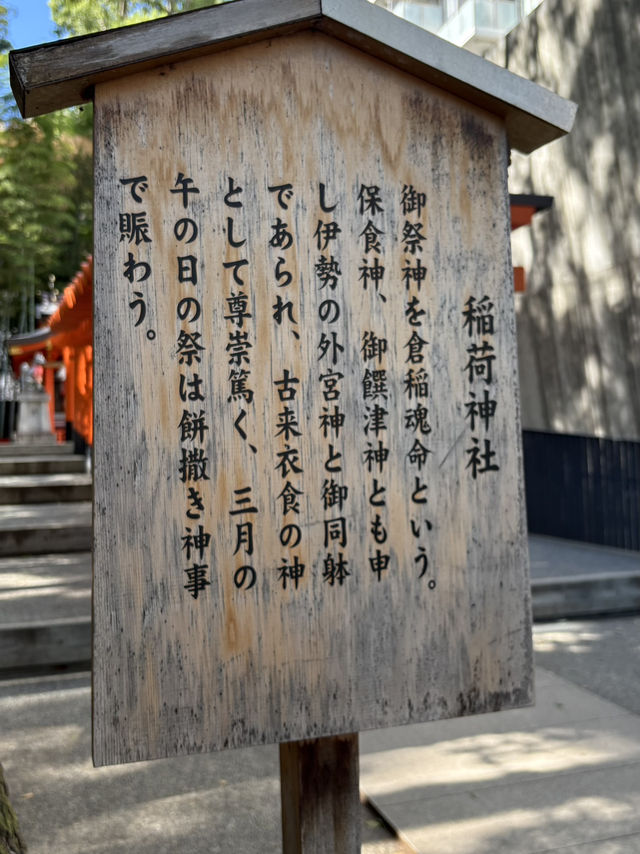 稲荷神社
御祭神を倉稲魂命という。
保食神、御饌津神とも申
し伊勢の外宮神と御同躰
であられ、古来衣食の神
として尊崇篤く、三月の
午の日の祭は餅撒き神事
で賑わう。